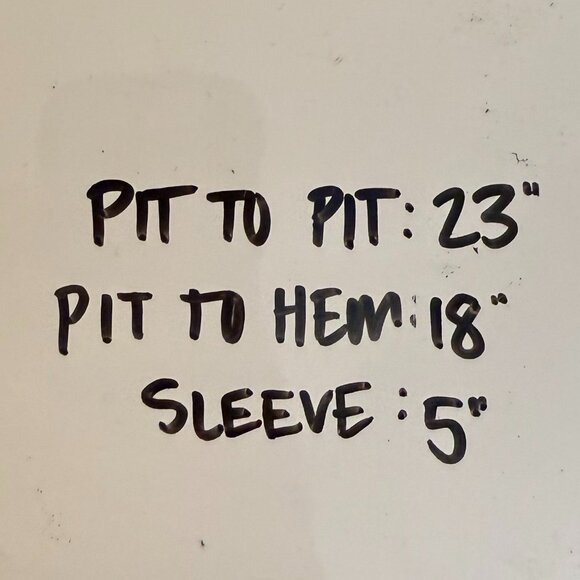 PIT TO PIT: 23"
PIT TO HEM: 18"
SLEEVE : 5"